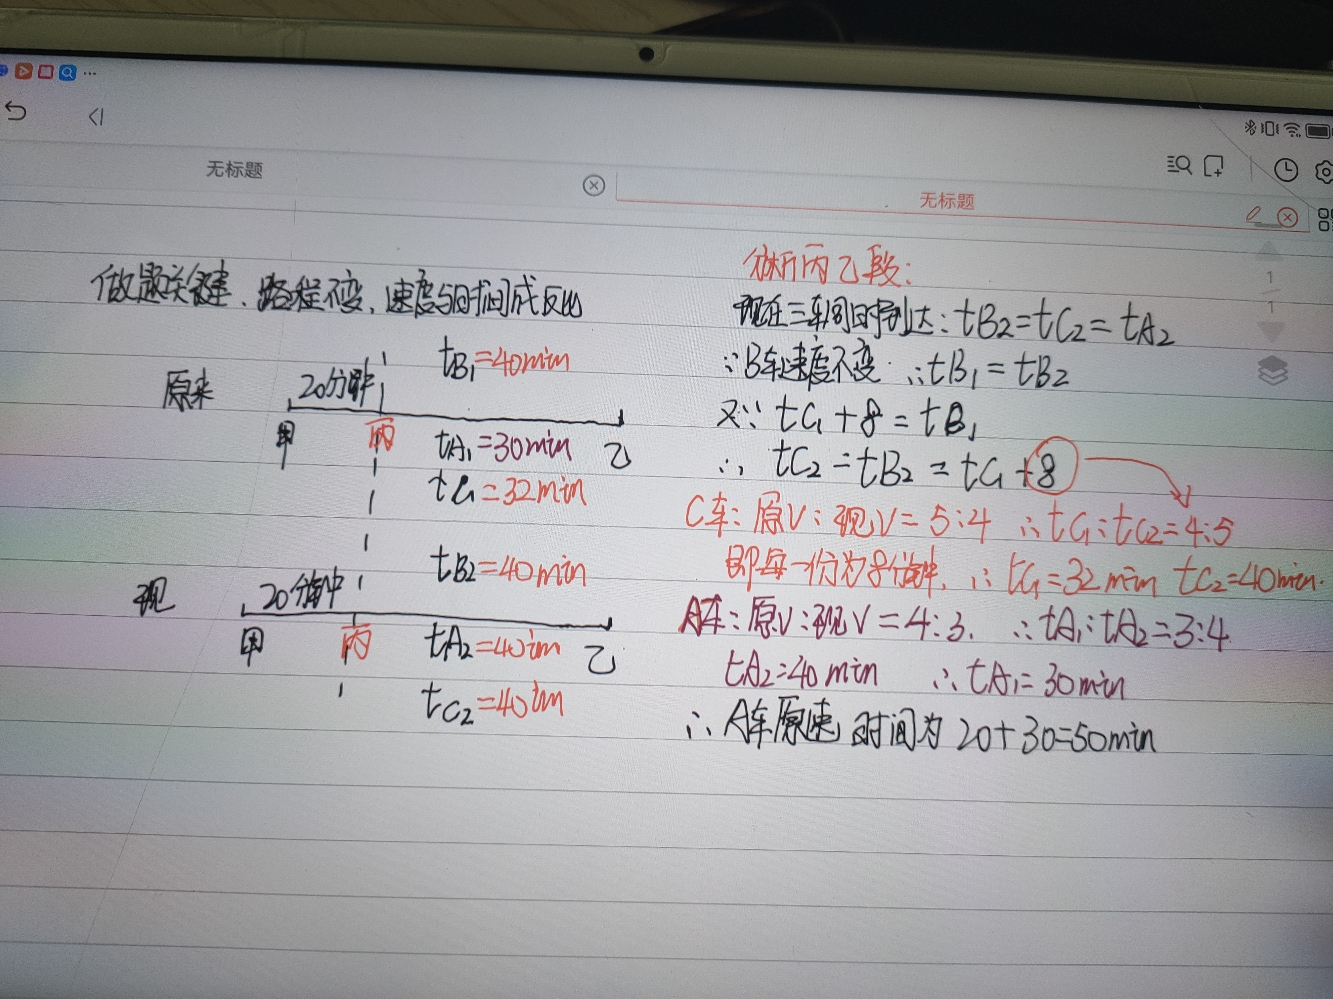 无标题
无标题
1
1
做题关键、路程不变，速度与时间成反比
原来
20分钟
tB₁=40min
甲
丙
乙
tA₁=30min
tC₁=32min
现
20分钟
tB₂=40min
甲
丙
乙
tA₂=40im
tC₂=40im
分析丙乙段：
现在三车同时到达：tB₂=tC₂=tA₂
∵B车速度不变 ∴tB₁=tB₂
又∵ tC₁+8=tB₁
∴ tC₂=tB₂=tC₁+8
C车：原V：现V=5:4 ∴tC₁:tC₂=4:5
即每一份为8分钟，∴tC₁=32min tC₂=40min.
A车：原V：现V=4:3. ∴tA₁:tA₂=3:4
tA₂=40min ∴tA₁=30min
∴A车原速时间为20+30=50min